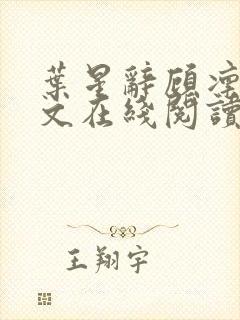 葉星辭顧凜
文在綫閱讀
王翔宇